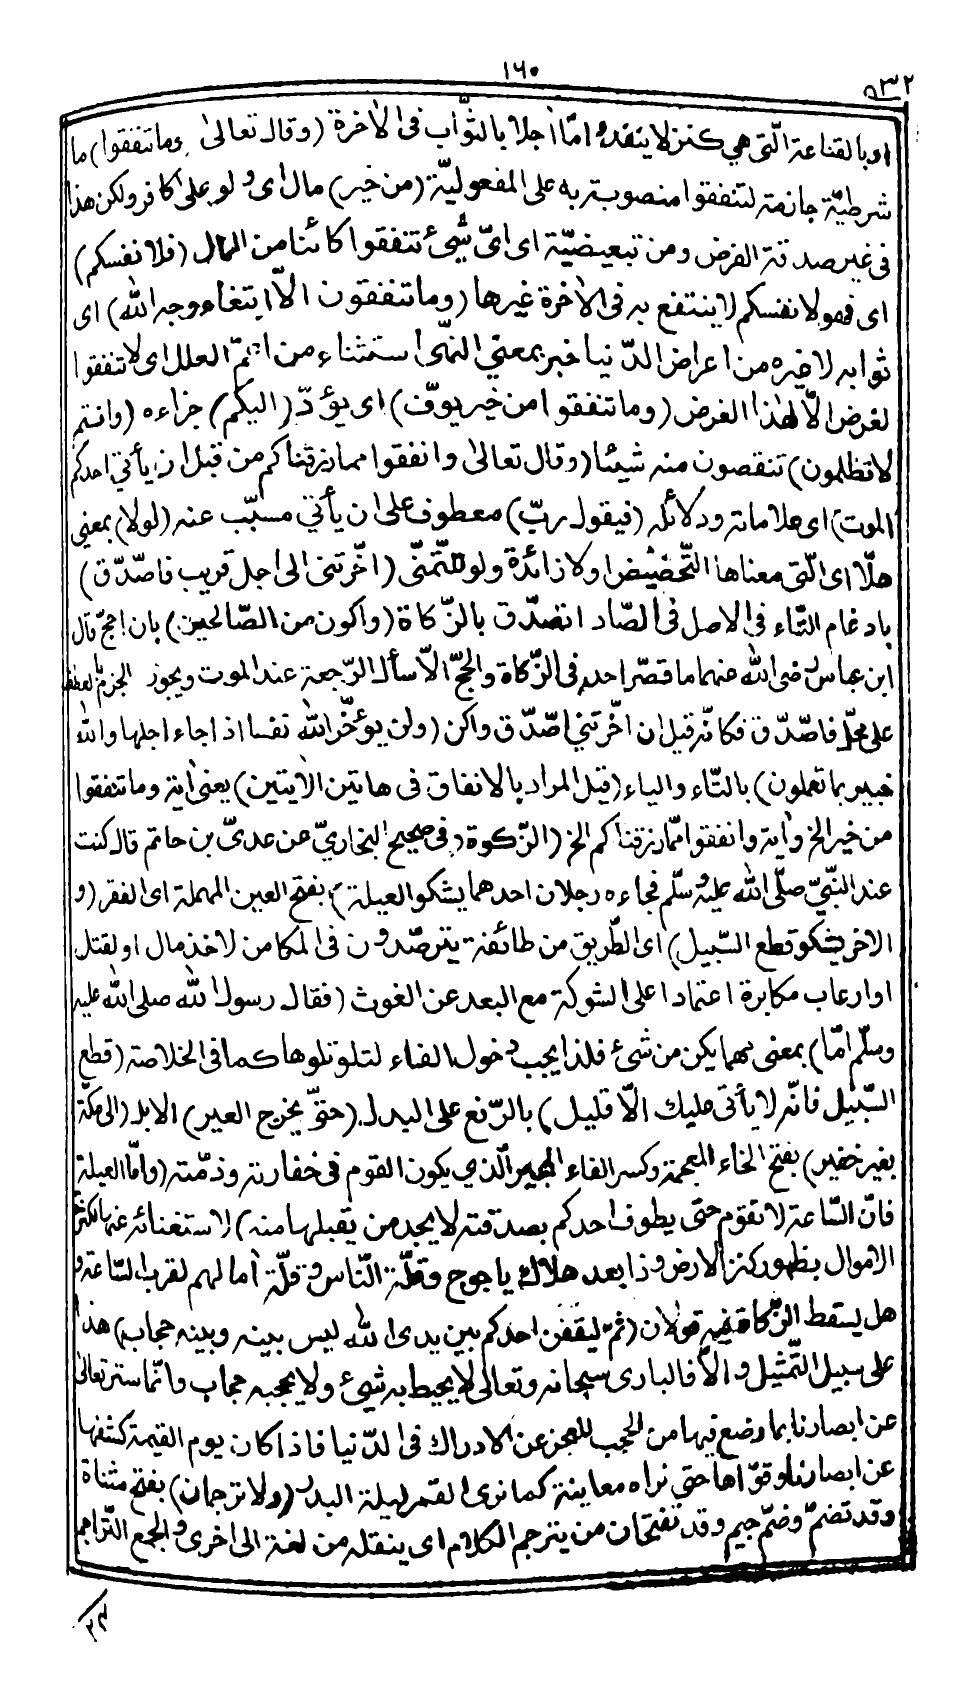 ١٦٠
٥٣٢
او بالقناعة الّتي هي كنز لا ينفد و امّا اجلا بالثّواب فى الاخرة (وقال تعالىٰ وما تنفقوا) ما
شرطيّة جازمة لتنفقوا منصوبة به على المفعوليّة (من خير) مال اى ولو على كافر ولكن هذا
فى غير صدقة الفرض ومن تبعيضيّة اى اىّ شيئ تنفقوا كائنا من المال (فلانفسكم)
اى فهو لانفسكم لا ينتفع به فى الاخرة غيرها (وما تنفقون الّا ابتغاء وجه الله) اى
ثوابه لا غيره من اعراض الدّنيا خبر بمعني النهى استثناء من اعمّ العلل اى لا تنفقوا
لغرض الّا لهٰذا الغرض (وما تنفقوا من خير يوفّ) اى يؤدّ (اليكم) جزاءه (وانتم
لا تظلمون) تنقصون منه شيئا (وقال تعالىٰ وانفقوا مما رزقناكم من قبل ان يأتي احدكم
الموت) اى علاماته ودلائله (فيقول ربّ) معطوف على ان يأتي مسبّب عنه (لولا) بمعنى
هلّا اى الّتى معناها التّحضيض او لا زائدة ولو للتّمنّى (اخّرتنى الى اجل قريب فاصّدّق)
بادغام التّاء فى الاصل فى الصّاد اتصدّق بالزّكاة (واكون من الصّالحين) بان احجّ قال
ابن عباس رضى الله عنهما ما قصّر احد فى الزّكاة والحجّ الّا سأل الرّجعة عند الموت ويجوز الجزم بالعطف
على محلّ فاصّدّق فكانّه قيل ان اخّرتنى اصّدّق واكن (ولن يوءخّر الله نفسا اذا جاء اجلها والله
خبير بما تعملون) بالتّاء والياء (قيل المراد بالانفاق فى هاتين الاٰيتين) يعنى اٰية وما تنفقوا
من خير الخ واٰية وانفقوا ممّا رزقناكم الخ (الزّكوة) (فى صحيح البخاريّ عن عدىّ بن حاتم قال كنت
عند النّبيّ صلّى الله عليه وسلّم فجاءه رجلان احدهما يشكو العيلة) بفتح العين المهملة اى الفقر (و
الاخر يشكو قطع السّبيل) اى الطّريق من طائفة يترصّدون فى المكامن لاخذ مال او لقتل
او ارعاب مكابرة اعتمادا على الشوكة مع البعد عن الغوث (فقال رسول الله صلى الله عليه
وسلّم امّا) بمعنى مهما يكن من شئ فلذا يجب دخول الفاء لتلو تلوها كما فى الخلاصة (قطع
السّبيل فانّه لا يأتى عليك الّا قليل) بالرّفع على البدل (حتىّ يخرج العير) الابل (الى مكّة
بغير خفير) بفتح الخاء المعجمة وكسر الفاء المجير الّذي يكون القوم فى خفارته وذمّته (وامّا العيلة
فانّ السّاعة لا تقوم حتى يطوف احدكم بصدقته لا يجد من يقبلها منه) لاستغنائه عنها لكثرة
الاموال بظهور كنز الارض وذا بعد هلاك ياجوج وقلّة النّاس وقلّة اٰمالهم لقرب السّاعة و
هل يسقط الزّكاة فيه قولان (ثمّ ليقفنّ احدكم بين يدى الله ليس بينه وبينه حجاب) هذا
على سبيل التّمثيل و الّا فالبارى سبحانه وتعالى لا يحيط به شيئ ولا يحجبه حجاب وانّما ستر تعالىٰ
عن ابصارنا بما وضع فيها من الحجب للعجز عن الادراك فى الدّنيا فاذا كان يوم القيمة كشفها
عن ابصارنا وقوّاها حتى نراه معاينة كما نرى القمر ليلة البدر (ولا ترجمان) بفتح مثناة
وقد تضمّ وضمّ جيم وقد تفتحان من يترجم الكلام اى ينقله من لغة الى اخرى والجمع التّراجم